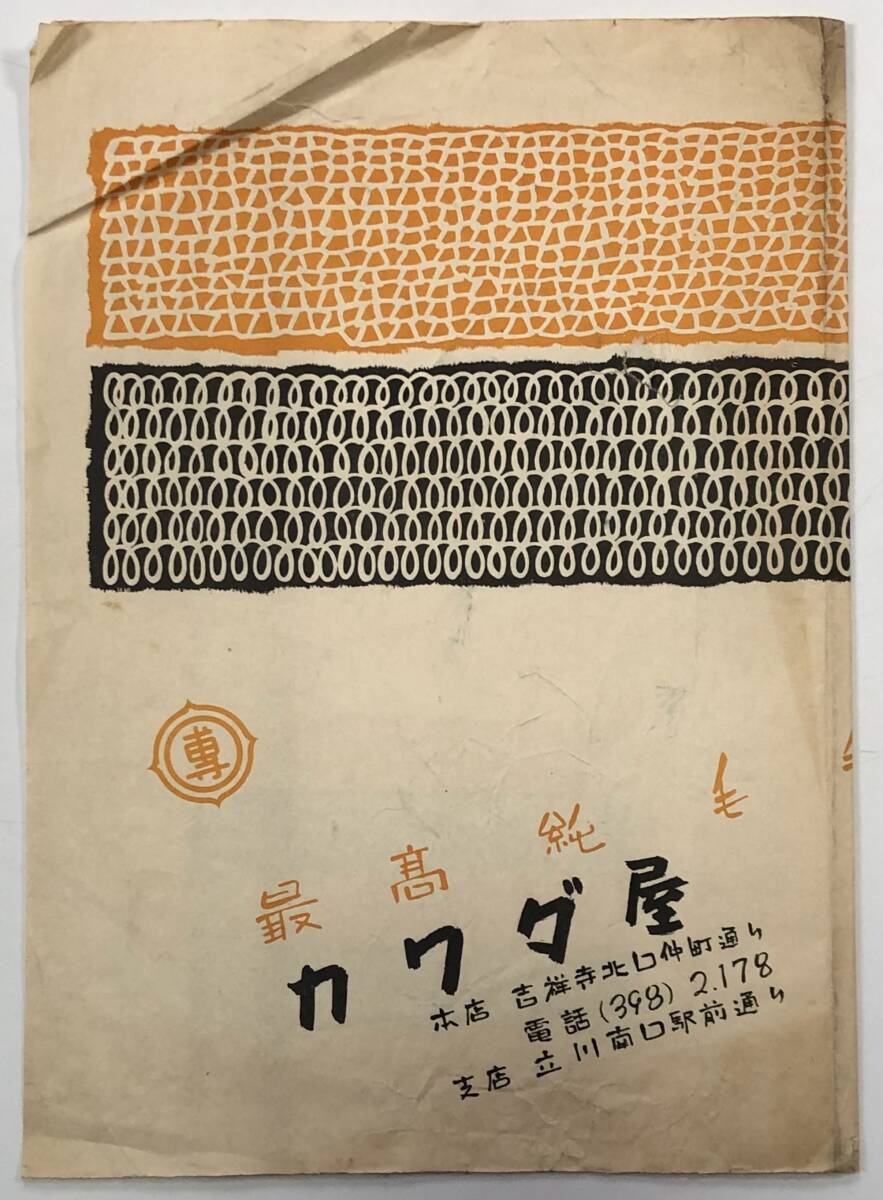 專
最高純毛
カワダ屋
本店 吉祥寺北口仲町通り
電話(398)2.178
支店 立川南口駅前通り